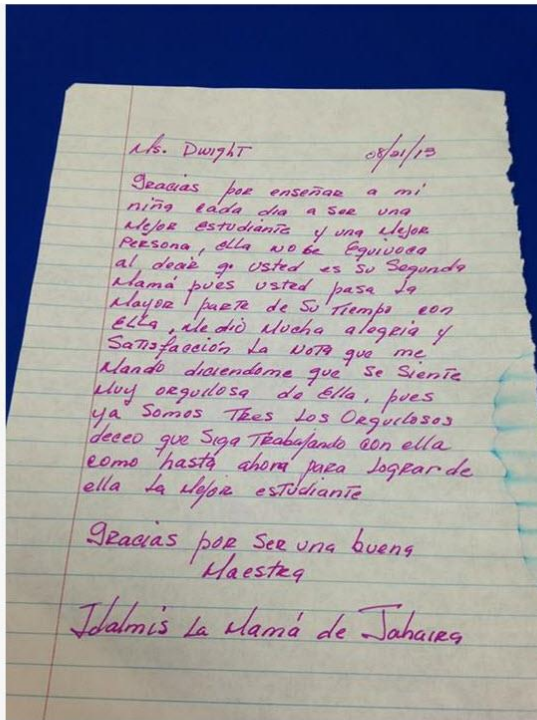 Ms. Dwight 08/21/13
Gracias por enseñar a mi
niña cada dia a ser una
Mejor estudiante y una Mejor
Persona, ella no se Equivoca
al decir q. usted es su Segunda
Mamá pues usted pasa La
Mayor parte de Su Tiempo con
Ella, Me dio Mucha alegria y
Satisfacción La Nota que me
Mando diciendome que Se Siente
Muy orgullosa de Ella, pues
ya Somos Tres Los Orgullosos
deceo que Siga Trabajando con ella
como hasta ahora para Lograr de
ella La Mejor estudiante
Gracias por Ser una buena
Maestra
Idalmis La Mamá de Jahaira